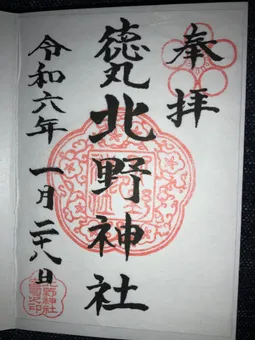 奉拝
徳丸北野神社
令和六年一月二十八日